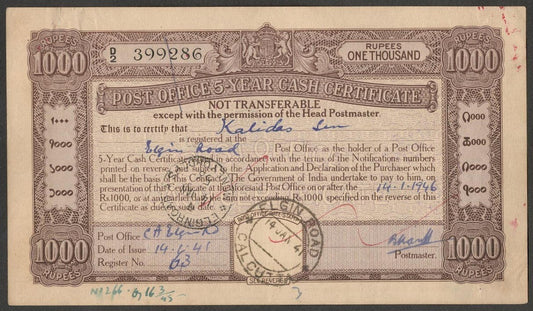 RUPEES
1000
D/2 399286
RUPEES
ONE THOUSAND
RUPEES
1000
POST OFFICE 5-YEAR CASH CERTIFICATE
NOT TRANSFERABLE
except with the permission of the Head Postmaster.
This is to certify that Kalidas Sen
is registered at the
Elgin Road Post Office as the holder of a Post Office
5-Year Cash Certificate in accordance with the terms of the Notifications numbers
printed on reverse and subject to the Application and Declaration of the Purchaser which
shall be the basis of this Contract. The Government of India undertake to pay to him, on
presentation of this Certificate at the aforesaid Post Office on or after the 14-1-1946
Rs1000, or at any time the sum not exceeding Rs1000 specified on the reverse of this
Certificate as due on such date.
Post Office
Date of Issue 14-1-41
Register No. 63
Postmaster.
1000
RUPEES
1000
RUPEES
ELGIN ROAD
14 JAN 41
CALCUTTA
SEE REVERSE